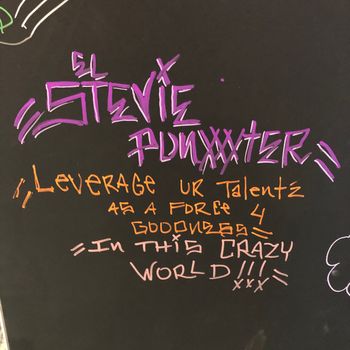 EL
STEVIE
PUNXXXTER
LEVERAGE UR TALENTZ
AS A FORCE 4
GOODNESS
IN THIS CRAZY
WORLD!!!
xxx